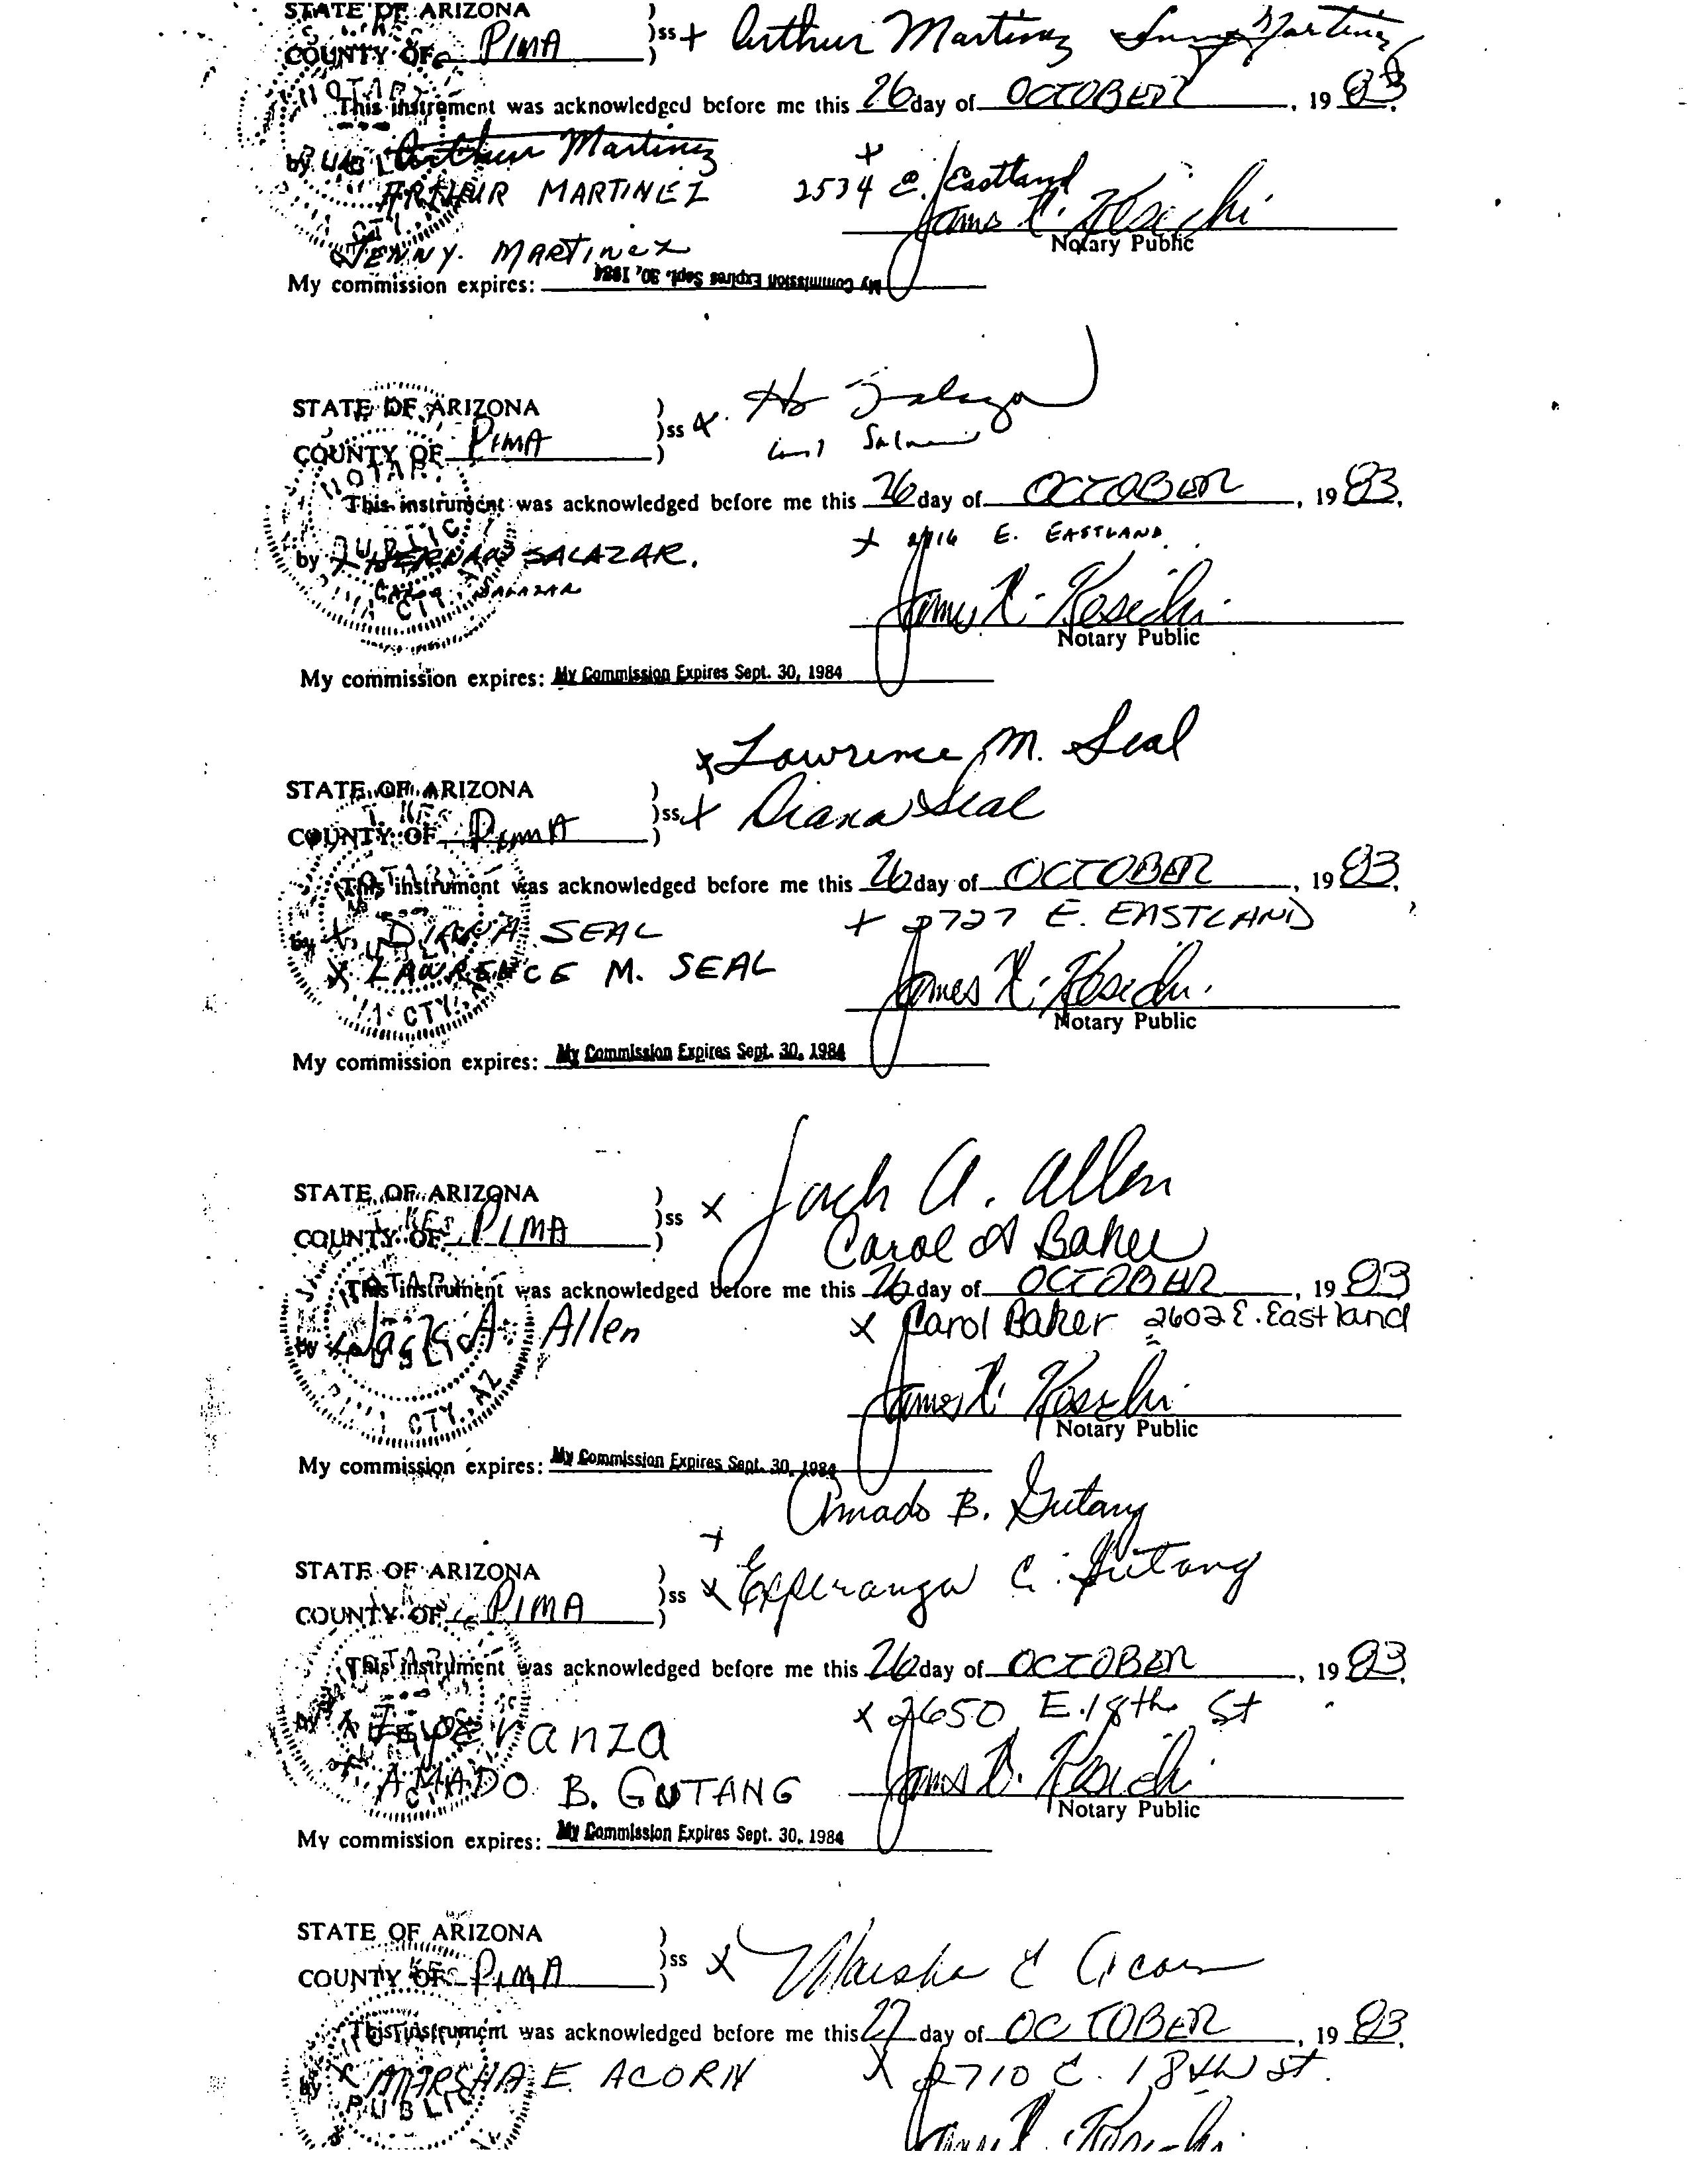 STATE OF ARIZONA
)ss + Arthur Martinez Martinez
COUNTY OF PIMA
This instrument was acknowledged before me this 26 day of OCTOBER, 1983.
by Arthur Martinez
ARTHUR MARTINEZ 2534 E. Eastland
Notary Public
JENNY. MARTINEZ
My commission expires: My Commission Expires Sept. 30, 1984
STATE OF ARIZONA
)ss x. Salazar
COUNTY OF PIMA
This instrument was acknowledged before me this 26 day of OCTOBER, 1983.
+ E. EASTLAND
by x SALAZAR.
SALAZAR
James K.
Notary Public
My commission expires: My Commission Expires Sept. 30, 1984
x Lawrence M. Seal
STATE OF ARIZONA
)ss x Diana Seal
COUNTY OF PIMA
This instrument was acknowledged before me this 26 day of OCTOBER, 1983.
by x DIANA SEAL + 2727 E. EASTLAND
x LAWRENCE M. SEAL
James K.
Notary Public
My commission expires: My Commission Expires Sept. 30, 1984
STATE OF ARIZONA
)ss x Jack A. Allen
COUNTY OF PIMA
Carol A Baker
This instrument was acknowledged before me this 26 day of OCTOBER, 1983
by x Jack A. Allen x Carol Baker 2602 E. Eastland
James K.
Notary Public
My commission expires: My Commission Expires Sept. 30, 1984
Amado B. Gutang
STATE OF ARIZONA
)ss x Esperanza C. Gutang
COUNTY OF PIMA
This instrument was acknowledged before me this 26 day of OCTOBER, 1983.
by x Esperanza x 2650 E. 18th St
x AMADO B. GUTANG
James K.
Notary Public
My commission expires: My Commission Expires Sept. 30, 1984
STATE OF ARIZONA
)ss x Marsha E Acorn
COUNTY OF PIMA
This instrument was acknowledged before me this 27 day of OCTOBER, 1983.
by x MARSHA E. ACORN x 2710 E. 18th St.
PUBLIC